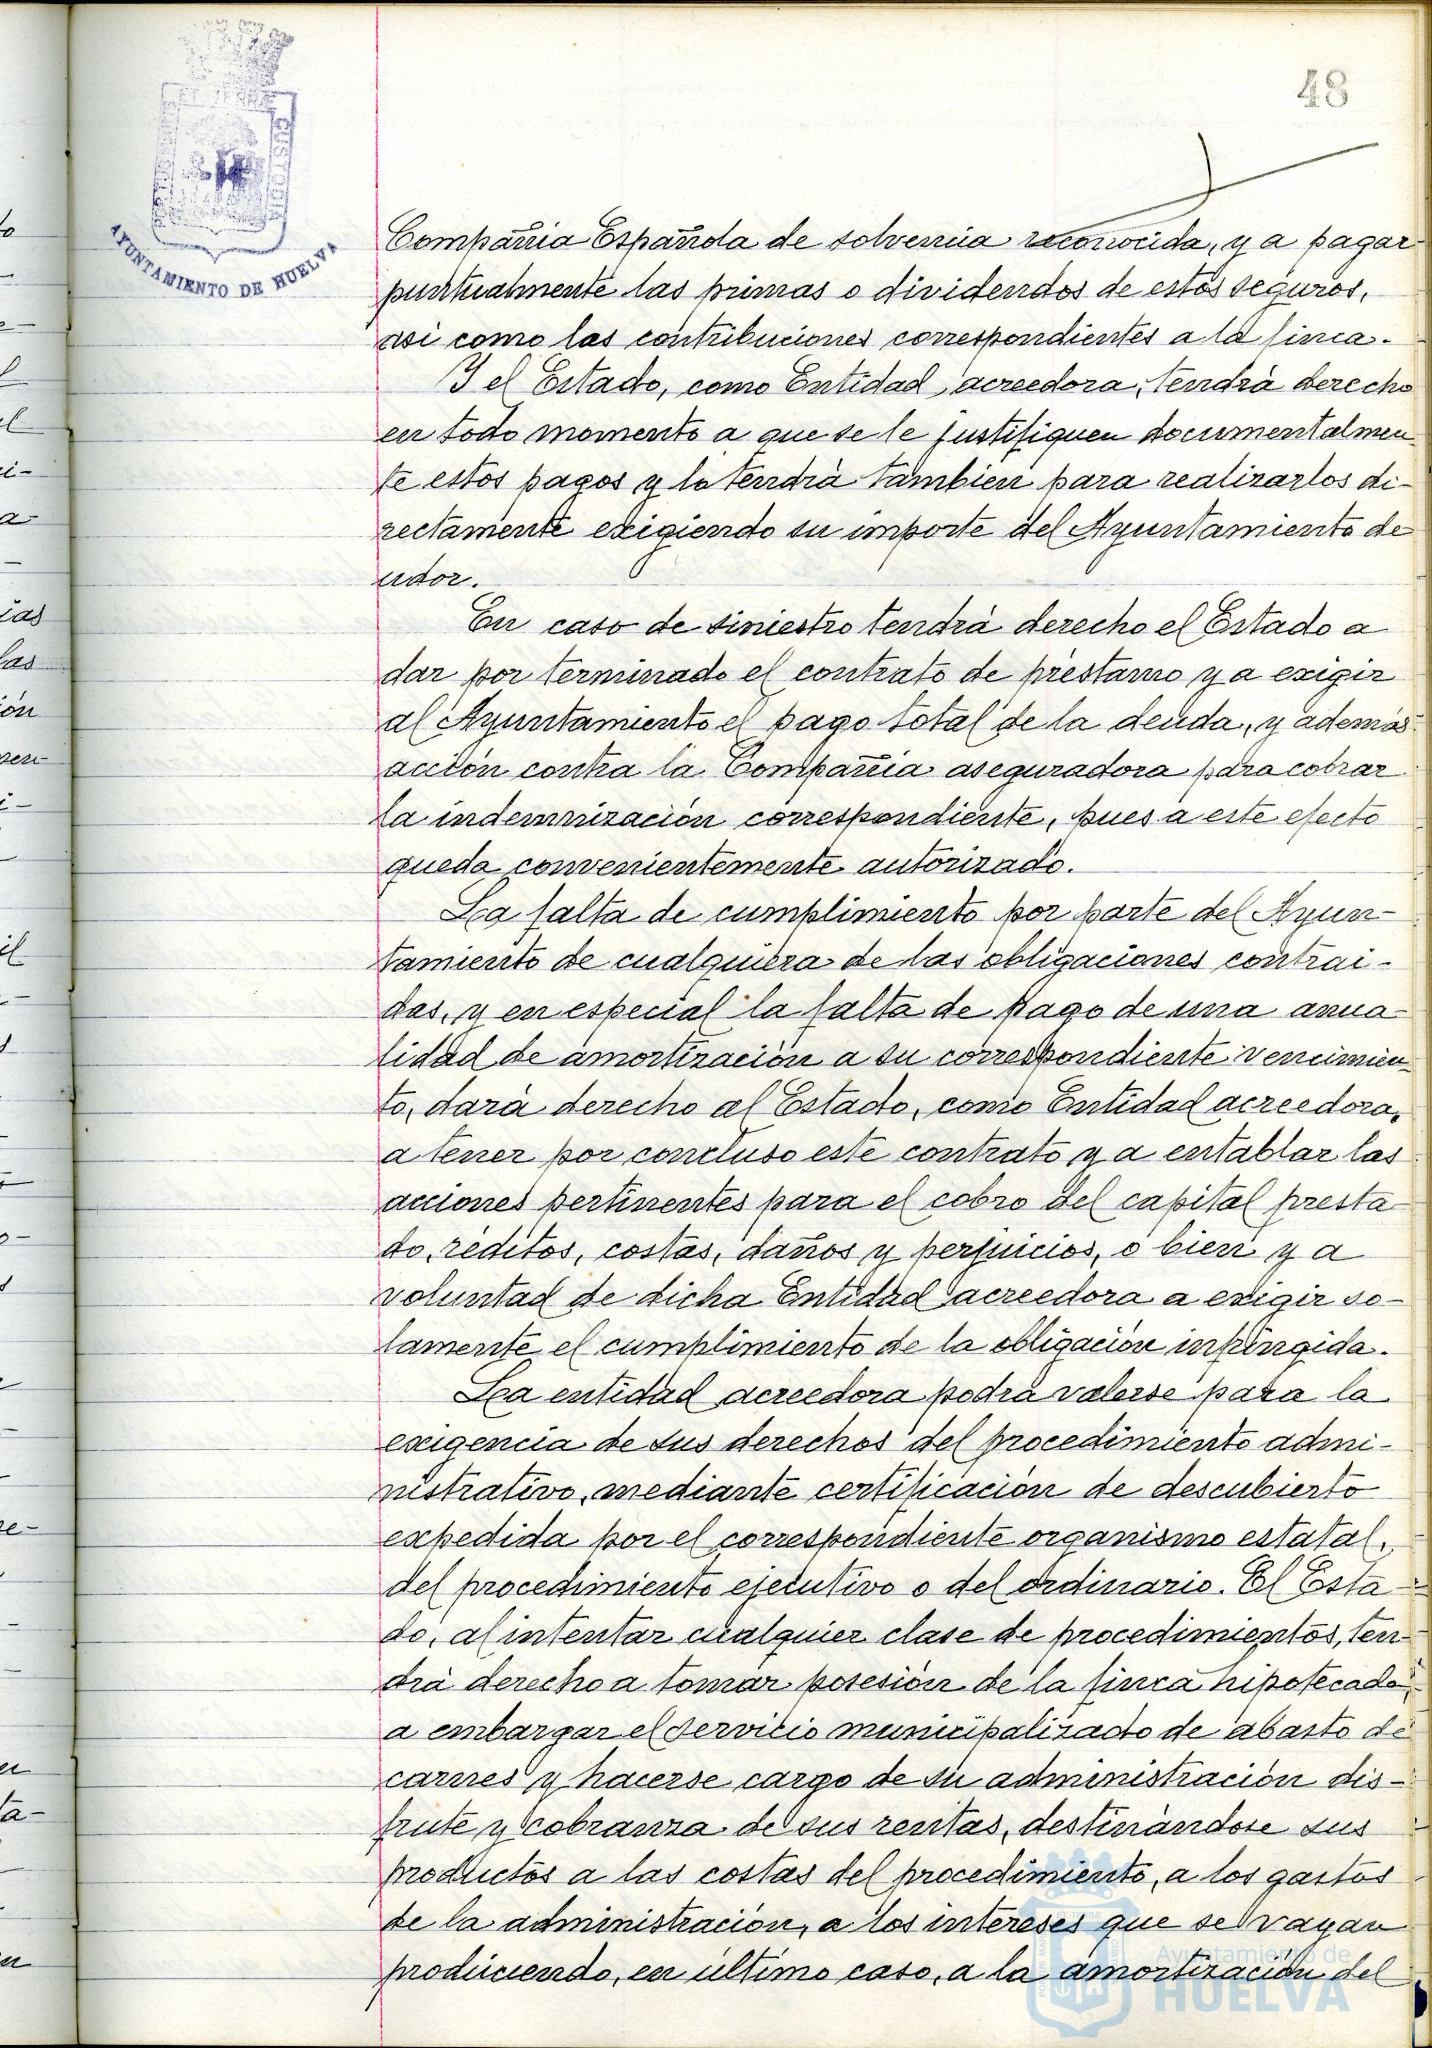 48
AYUNTAMIENTO DE HUELVA
Compañia Española de solvencia reconocida, y a pagar
puntualmente las primas o dividendos de estos seguros,
asi como las contribuciones correspondientes a la finca.
Y el Estado, como Entidad acreedora, tendrà derecho
en todo momento a que se le justifiquen documentalmen
te estos pagos y lo tendrà tambien para realizarlos di-
rectamente exigiendo su importe del Ayuntamiento de
udor.
En caso de siniestro tendrà derecho el Estado a
dar por terminado el contrato de prèstamo y a exigir
al Ayuntamiento el pago total de la deuda, y además
acción contra la Compañia aseguradora para cobrar
la indemnización correspondiente, pues a este efecto
queda convenientemente autorizado.
La falta de cumplimiento por parte del Ayun-
tamiento de cualquiera de las obligaciones contrai-
das, y en especial la falta de pago de una anua-
lidad de amortización a su correspondiente vencimien
to, darà derecho al Estado, como Entidad acreedora,
a tener por concluso este contrato y a entablar las
acciones pertinentes para el cobro del capital presta
do, rèditos, costas, daños y perjuicios, o bien y a
voluntad de dicha Entidad acreedora a exigir so-
lamente el cumplimiento de la obligación infringida.
La entidad acreedora podrà valerse para la
exigencia de sus derechos del procedimiento admi-
nistrativo, mediante certificación de descubierto
expedida por el correspondiente organismo estatal,
del procedimiento ejecutivo o del ordinario. El Esta
do, al intentar cualquier clase de procedimientos, ten
drà derecho a tomar posesión de la finca hipotecada,
a embargar el servicio municipalizado de abasto de
carnes y hacerse cargo de su administración dis-
frute y cobranza de sus rentas, destinàndose sus
productos a las costas del procedimiento, a los gastos
de la administración, a los intereses que se vayan
produciendo, en último caso, a la amortización del
Ayuntamiento de
HUELVA